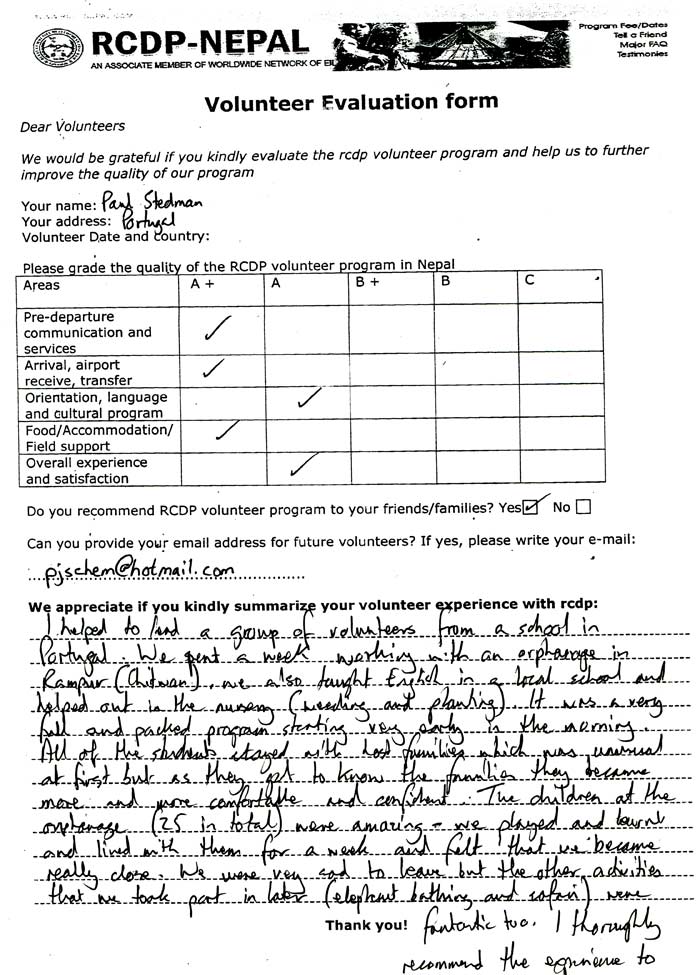 RCDP-NEPAL
AN ASSOCIATE MEMBER OF WORLDWIDE NETWORK OF EIL
Program Fee/Dates
Tell a Friend
Major FAQ
Testimonies
Volunteer Evaluation form
Dear Volunteers
We would be grateful if you kindly evaluate the rcdp volunteer program and help us to further
improve the quality of our program
Your name: Paul Stedman
Your address: Portugal
Volunteer Date and country:
Please grade the quality of the RCDP volunteer program in Nepal
Areas A + A B + B C
Pre-departure
communication and
services
Arrival, airport
receive, transfer
Orientation, language
and cultural program
Food/Accommodation/
Field support
Overall experience
and satisfaction
Do you recommend RCDP volunteer program to your friends/families? Yes No
Can you provide your email address for future volunteers? If yes, please write your e-mail:
pjschem@hotmail.com
We appreciate if you kindly summarize your volunteer experience with rcdp:
I helped to lead a group of volunteers from a school in
Portugal. We spent a week working with an orphanage in
Rampur (Chitwan), we also taught English in a local school and
helped out in the nursery (weeding and planting). It was a very
full and packed program starting very early in the morning.
All of the students stayed with host families which was unusual
at first but as they got to know the families they became
more and more comfortable and confident. The children at the
orphanage (25 in total) were amazing - we played and learnt
and lived with them for a week and felt that we became
really close. We were very sad to leave but the other activities
that we took part in later (elephant bathing and safari) were
Thank you! fantastic too. I thoroughly
recommend the experience to